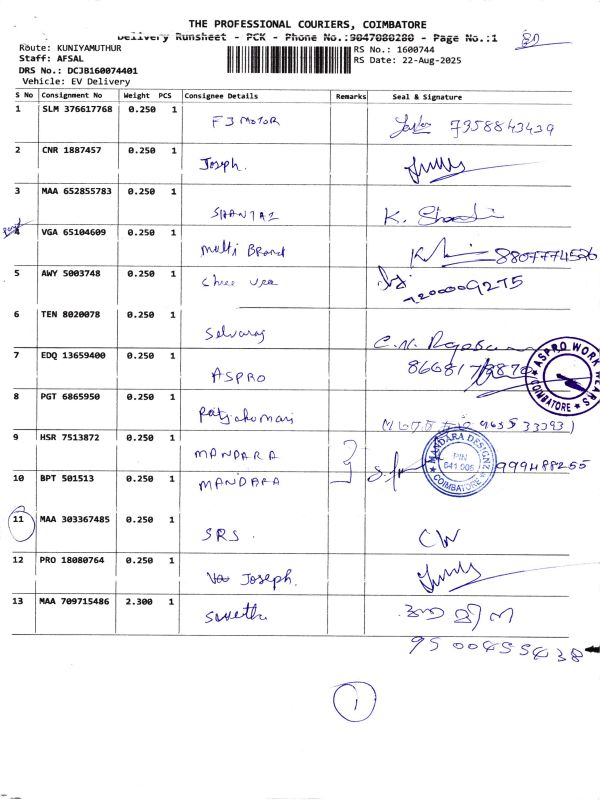 THE PROFESSIONAL COURIERS, COIMBATORE
Delivery Runsheet - PCK - Phone No.:9047080280 - Page No.:1
Route: KUNIYAMUTHUR RS No.: 1600744
Staff: AFSAL RS Date: 22-Aug-2025
DRS No.: DCJB160074401
Vehicle: EV Delivery
S No Consignment No Weight PCS Consignee Details Remarks Seal & Signature
1 SLM 376617768 0.250 1
F3 MOTOR 7958843439
2 CNR 1887457 0.250 1
Joseph.
3 MAA 652855783 0.250 1
K.
4 VGA 65104609 0.250 1
Multi Brand 8807774526
5 AWY 5003748 0.250 1
7200009275
6 TEN 8020078 0.250 1
Selvaraj
7 EDQ 13659400 0.250 1
ASPRO
ASPRO WORK WEARS * COIMBATORE *
8 PGT 6865950 0.250 1
9 HSR 7513872 0.250 1
MANDARA
MANDARA DESIGNZ PIN 641 008 COIMBATORE
10 BPT 501513 0.250 1
MANDARA
11 MAA 303367485 0.250 1
SRS.
12 PRO 18080764 0.250 1
Joseph.
13 MAA 709715486 2.300 1
9500455438
1